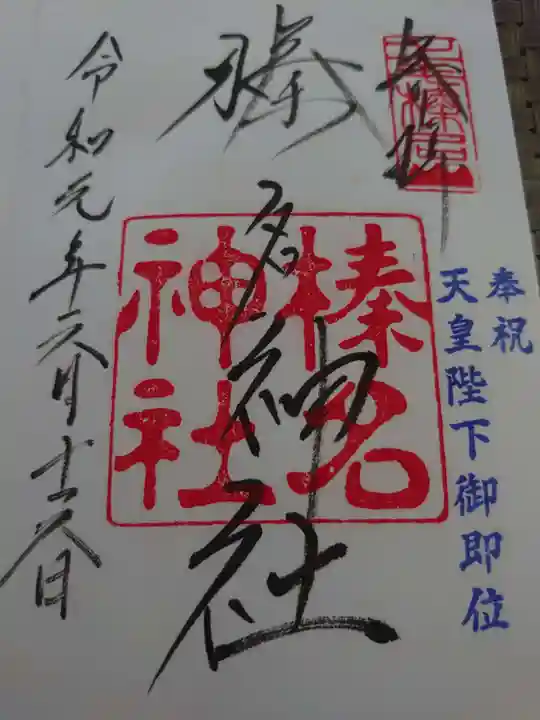 奉拝
奉祝
天皇陛下御即位
榛名神社
榛名
神社
令和元年六月十六日